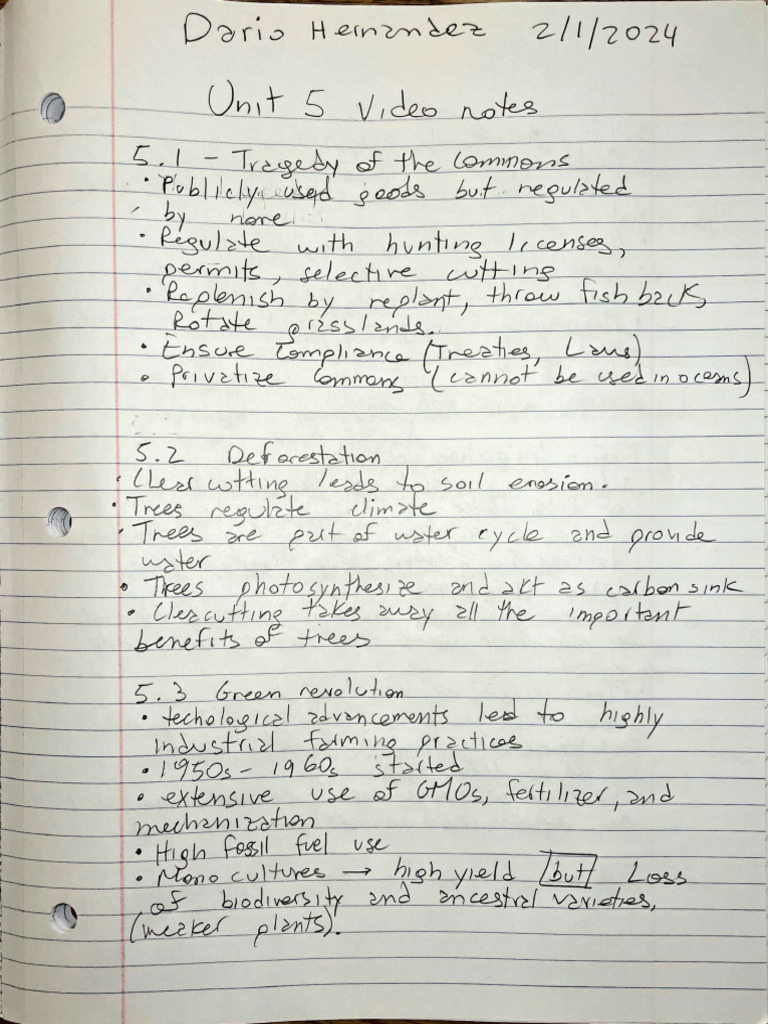 Dario Hernandez 2/1/2024
Unit 5 Video notes
5.1 - Tragedy of the Commons
• Publicly used goods but regulated
by none
• Regulate with hunting licenses,
permits, selective cutting
• Replenish by replant, throw fish back,
Rotate grasslands.
• Ensure Compliance (Treaties, Laws)
• Privatize Commons (cannot be used in oceans)
5.2 Deforestation
• Clear cutting leads to soil erosion.
• Trees regulate climate
• Trees are part of water cycle and provide
water
• Trees photosynthesize and akt as carbon sink
• Clearcutting takes away all the important
benefits of trees
5.3 Green revolution
• techological advancements led to highly
industrial farming practices
• 1950s - 1960s started
• extensive use of GMOs, fertilizer, and
mechanization
• High fossil fuel use
• Mono cultures → high yield but Loss
of biodiversity and ancestral varieties,
(weaker plants).